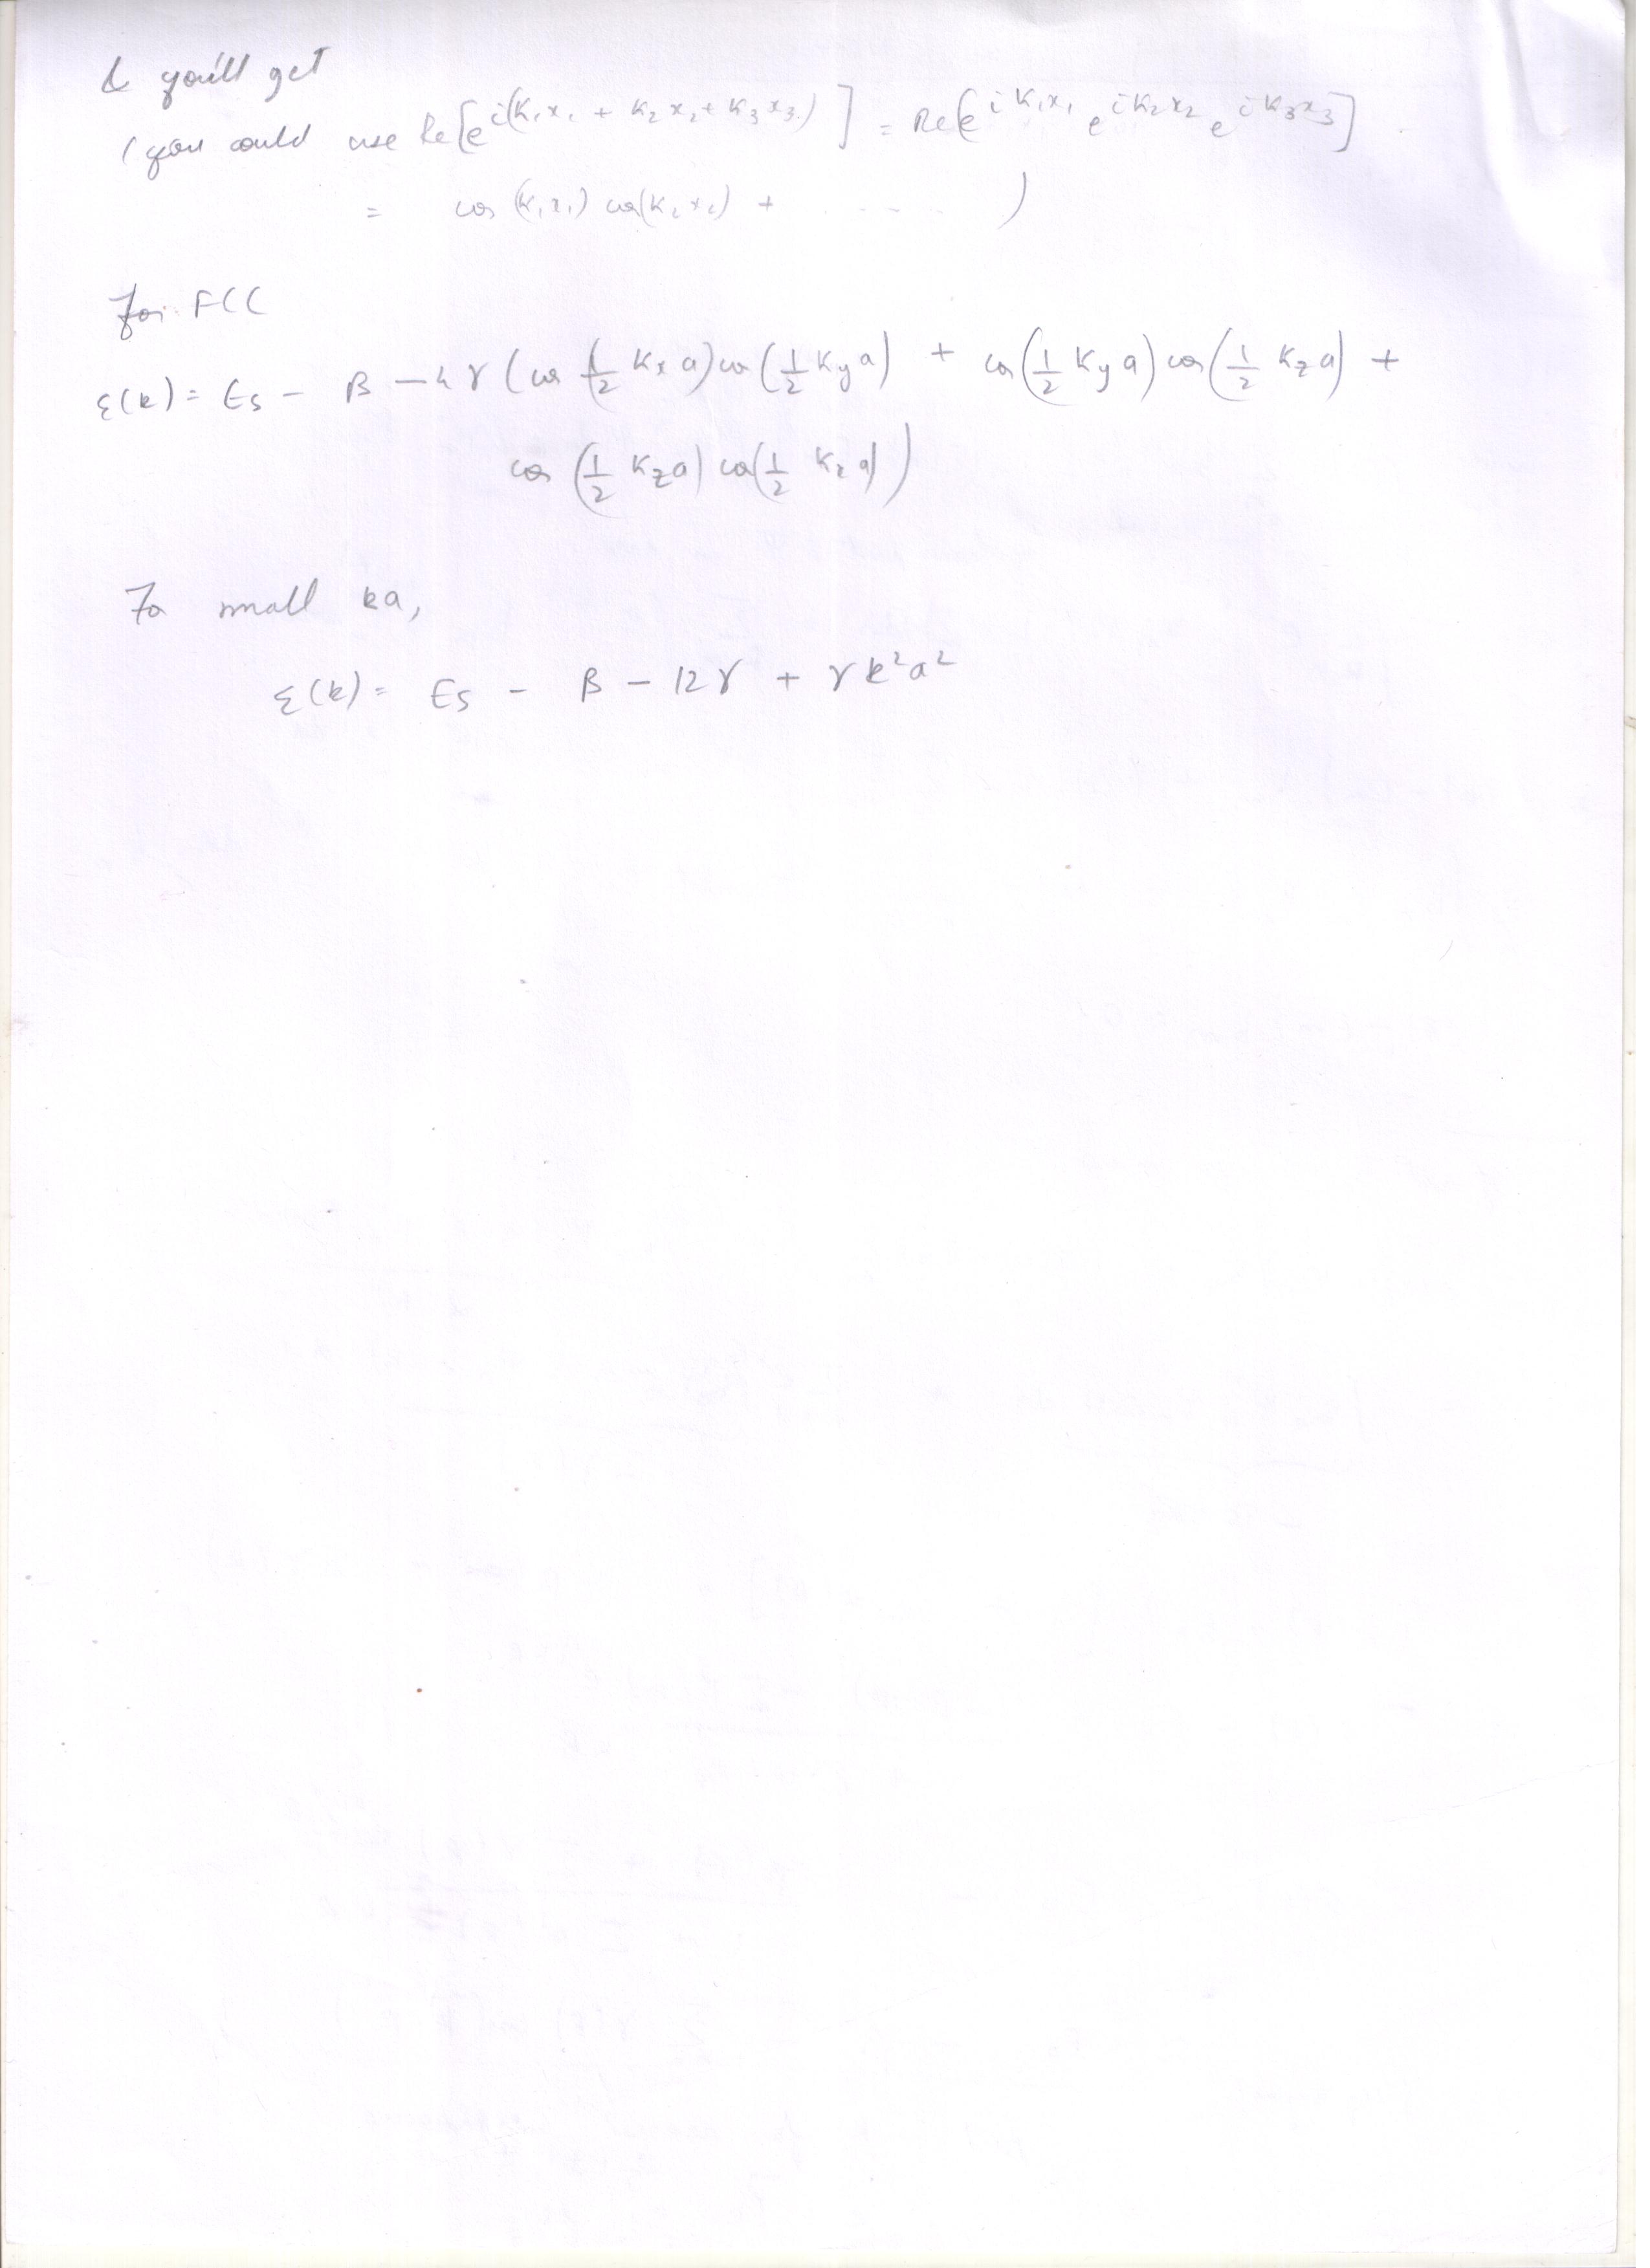 & you'll get
(you could use Re[e^{i(k₁x₁ + k₂x₂ + k₃x₃)}] = Re[e^{ik₁x₁} e^{ik₂x₂} e^{ik₃x₃}]
= cos(k₁x₁) cos(k₂x₂) + . . . . )
For FCC
ε(k) = Es − β − 4γ (cos(½ kₓa) cos(½ k_y a) + cos(½ k_y a) cos(½ k_z a) +
cos(½ k_z a) cos(½ kₓ a))
Fo small ka,
ε(k) = Es − β − 12γ + γk²a²